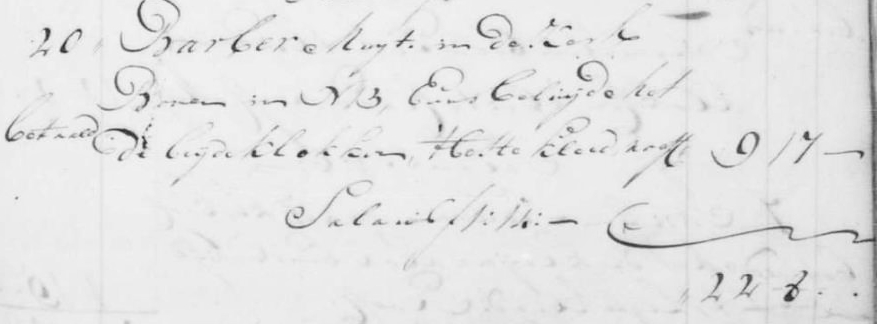 20 Barber Kuyt in De Kerk
Boven in N 3, Eens beluijd het
betaald De beyde klokken, Heste kleed nooft 9 17 –
Salaris f 1:14: –
22 8 .